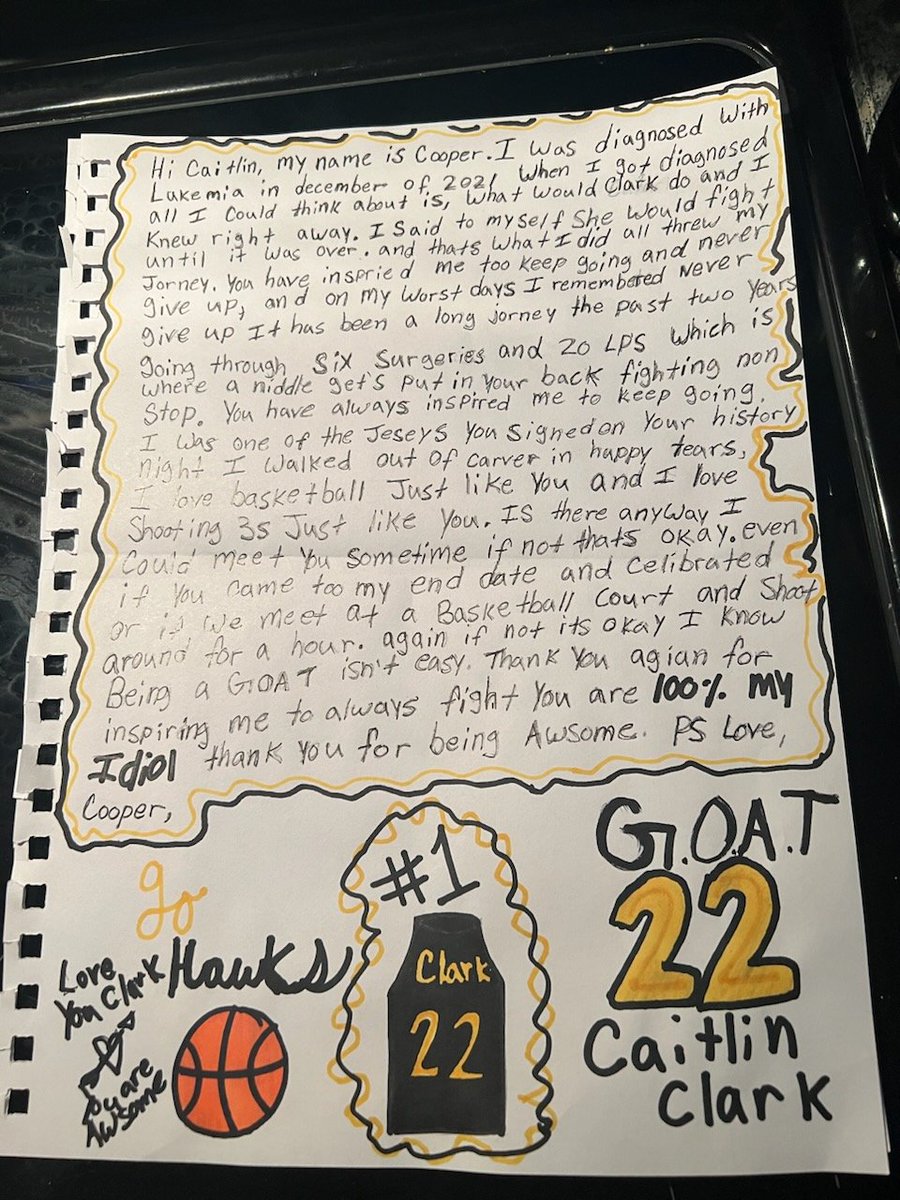 Hi Caitlin, my name is Cooper. I was diagnosed with
Lukemia in december of 2021 when I got diagnosed
all I could think about is, what would Clark do and I
Knew right away. I Said to myself She would fight
until it was over. and thats what I did all threw my
Jorney. You have inspried me too keep going and never
give up, and on my worst days I remembered Never
give up It has been a long jorney the past two years
going through Six Surgeries and 20 LPS which is
where a niddle get's put in your back fighting non
Stop. You have always inspired me to keep going.
I was one of the Jeseys you signed on Your history
night I walked out of carver in happy tears,
I love basketball Just like You and I love
Shooting 3s Just like You. IS there anyway I
Could meet You sometime if not thats okay. even
if You came too my end date and Celibrated
or if we meet at a Basketball Court and Shoot
around for a hour. again if not its okay I know
Being a G.O.A.T isn't easy. Thank You agian for
inspiring me to always fight You are 100% MY
Idiol thank You for being Awsome. PS Love,
Cooper,
go
Hawks
Love
You Clark
You are
Awsome
#1
Clark
22
G.O.A.T
22
Caitlin
Clark